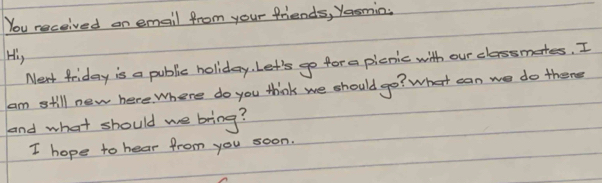 You received an email from your friends, Yasmin:
Hi,
Next friday is a public holiday. Let's go for a picnic with our classmates. I
am still new here. Where do you think we should go? What can we do there
and what should we bring?
I hope to hear from you soon.